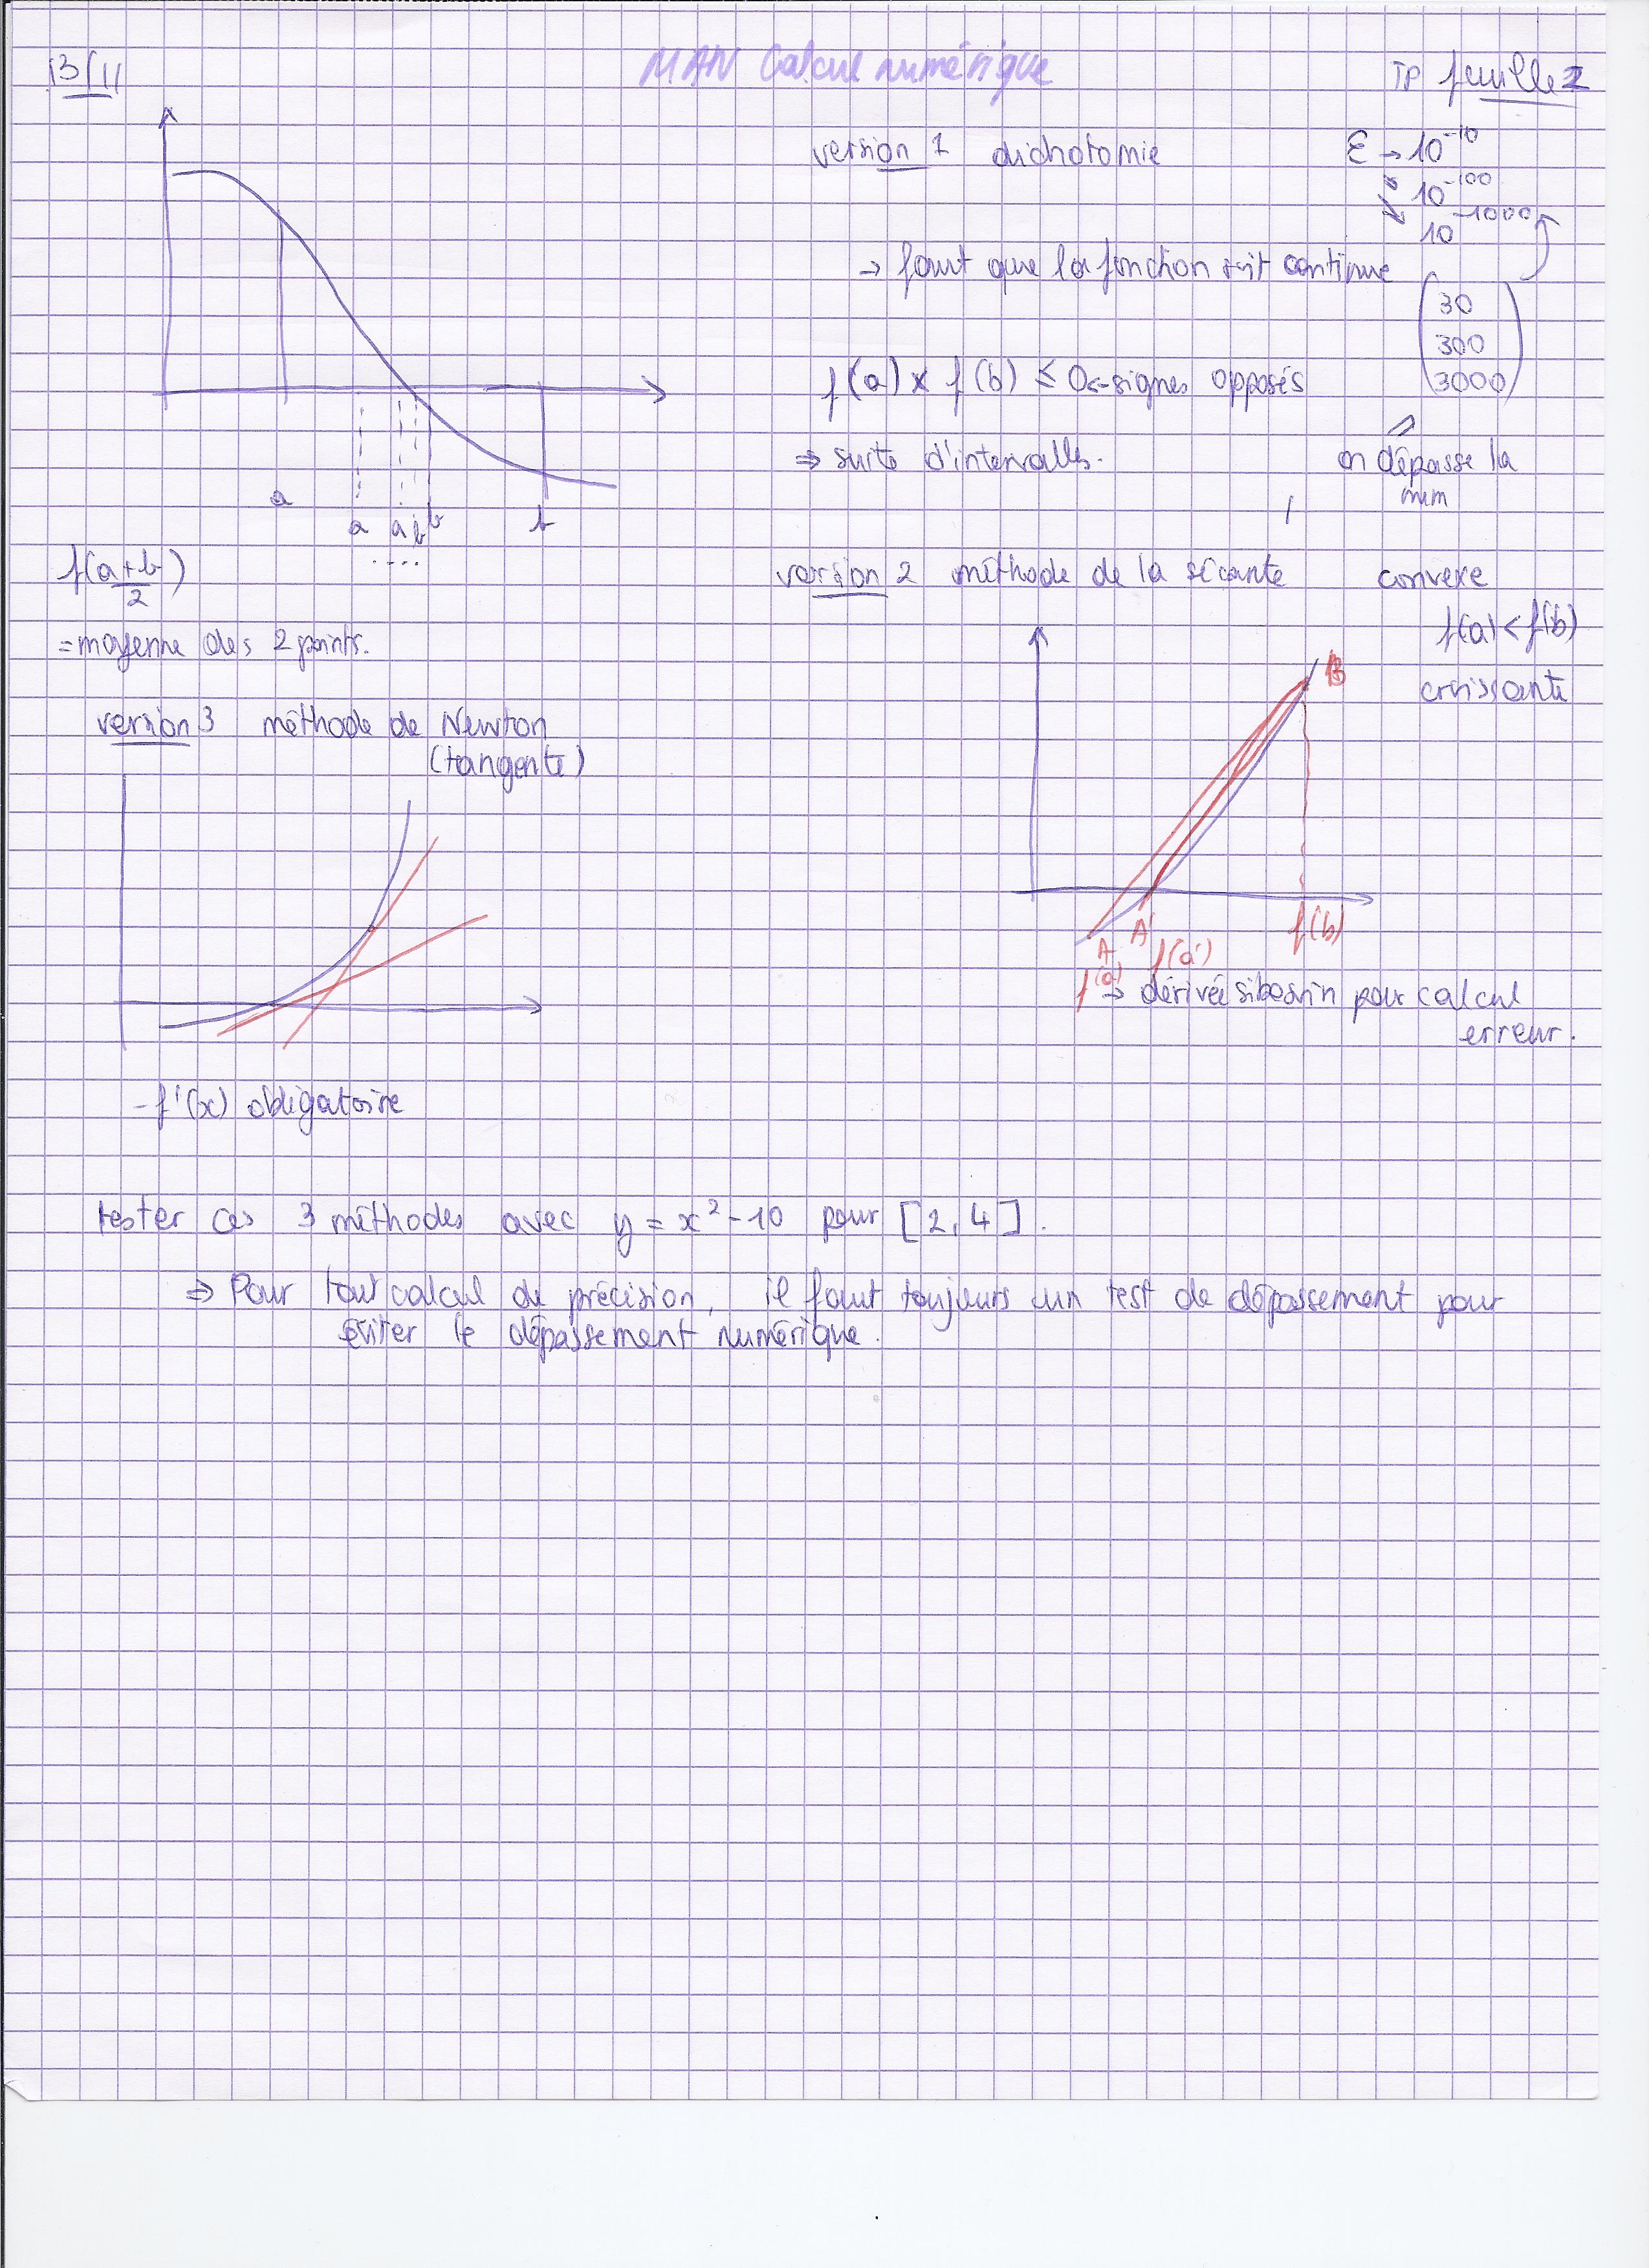 13/11
MAN Calcul numérique
TP feuille 2
version 1 dichotomie
ε → 10^-10
10^-100
10^-1000
→ faut que la fonction soit continue
(30
300
3000)
f(a) x f(b) ≤ 0 <- signes opposés
⇒ suite d'intervalles.
on dépasse la
mem
a
a a b b
b
....
f(a+b/2)
= moyenne des 2 points.
version 2 méthode de la sécante
convexe
f(a) < f(b)
croissante
B
A A'
f(a) f(a') f(b)
→ dérivée si besoin pour calcul
erreur.
version 3 méthode de Newton
(tangente)
- f'(x) obligatoire
tester ces 3 méthodes avec y = x² - 10 pour [2, 4].
⇒ Pour tout calcul de précision, il faut toujours un test de dépassement pour
éviter le dépassement numérique.